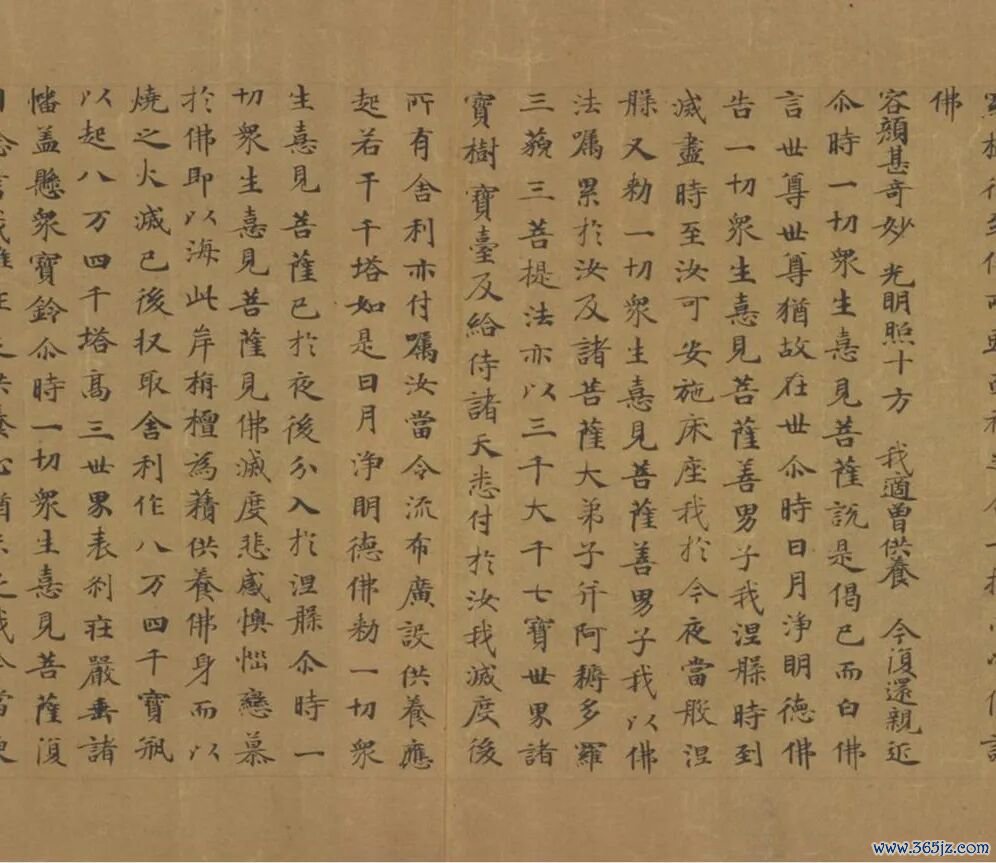 佛
容顏甚奇妙 光明照十方 我適曾供養 今復還親近
尒時一切衆生憙見菩薩說是偈已而白佛
言世尊世尊猶故在世尒時日月淨明德佛
告一切衆生憙見菩薩善男子我涅槃時到
滅盡時至汝可安施床座我於今夜當般涅
槃又勑一切衆生憙見菩薩善男子我以佛
法囑累於汝及諸菩薩大弟子并阿耨多羅
三藐三菩提法亦以三千大千七寶世界諸
寶樹寶臺及給侍諸天悉付於汝我滅度後
所有舍利亦付囑汝當令流布廣設供養應
起若干千塔如是日月淨明德佛勑一切衆
生憙見菩薩已於夜後分入於涅槃尒時一
切衆生憙見菩薩見佛滅度悲感懊惱戀慕
於佛即以海此岸栴檀為𧂐供養佛身而以
燒之火滅已後收取舍利作八万四千寶瓶
以起八万四千塔高三世界表刹莊嚴垂諸
幡盖懸衆寶鈴尒時一切衆生憙見菩薩復
www.365jz.com